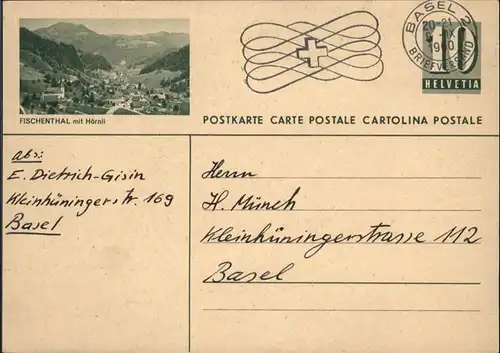 BASEL 2
20-21
IX
1960
BRIEFVERSAND
10
HELVETIA
FISCHENTHAL mit Hörnli
POSTKARTE CARTE POSTALE CARTOLINA POSTALE
abs:
E. Dietrich-Gisin
Kleinhüningerstr. 169
Basel
Herrn
H. Münch
Kleinhüningerstrasse 112
Basel